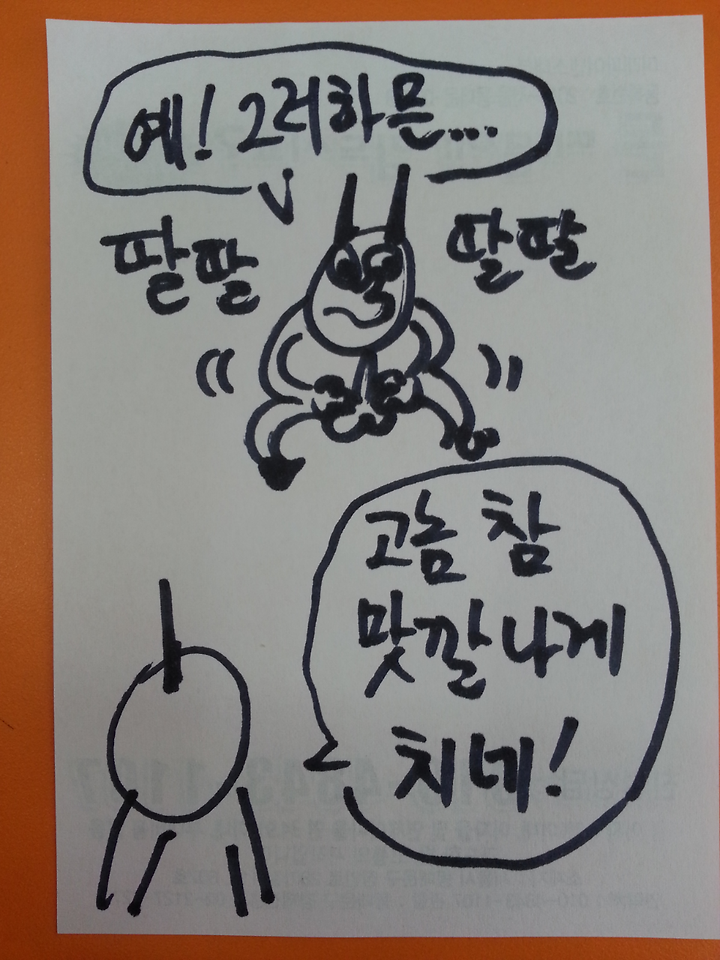 예! 그러하믄...
딸딸 딸딸
고놈 참
맛깔나게
치네!